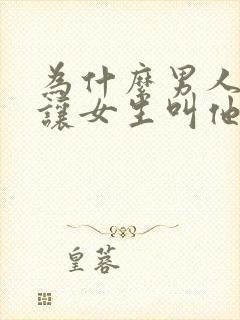 為什麼男人
讓女生叫他
皇蓉